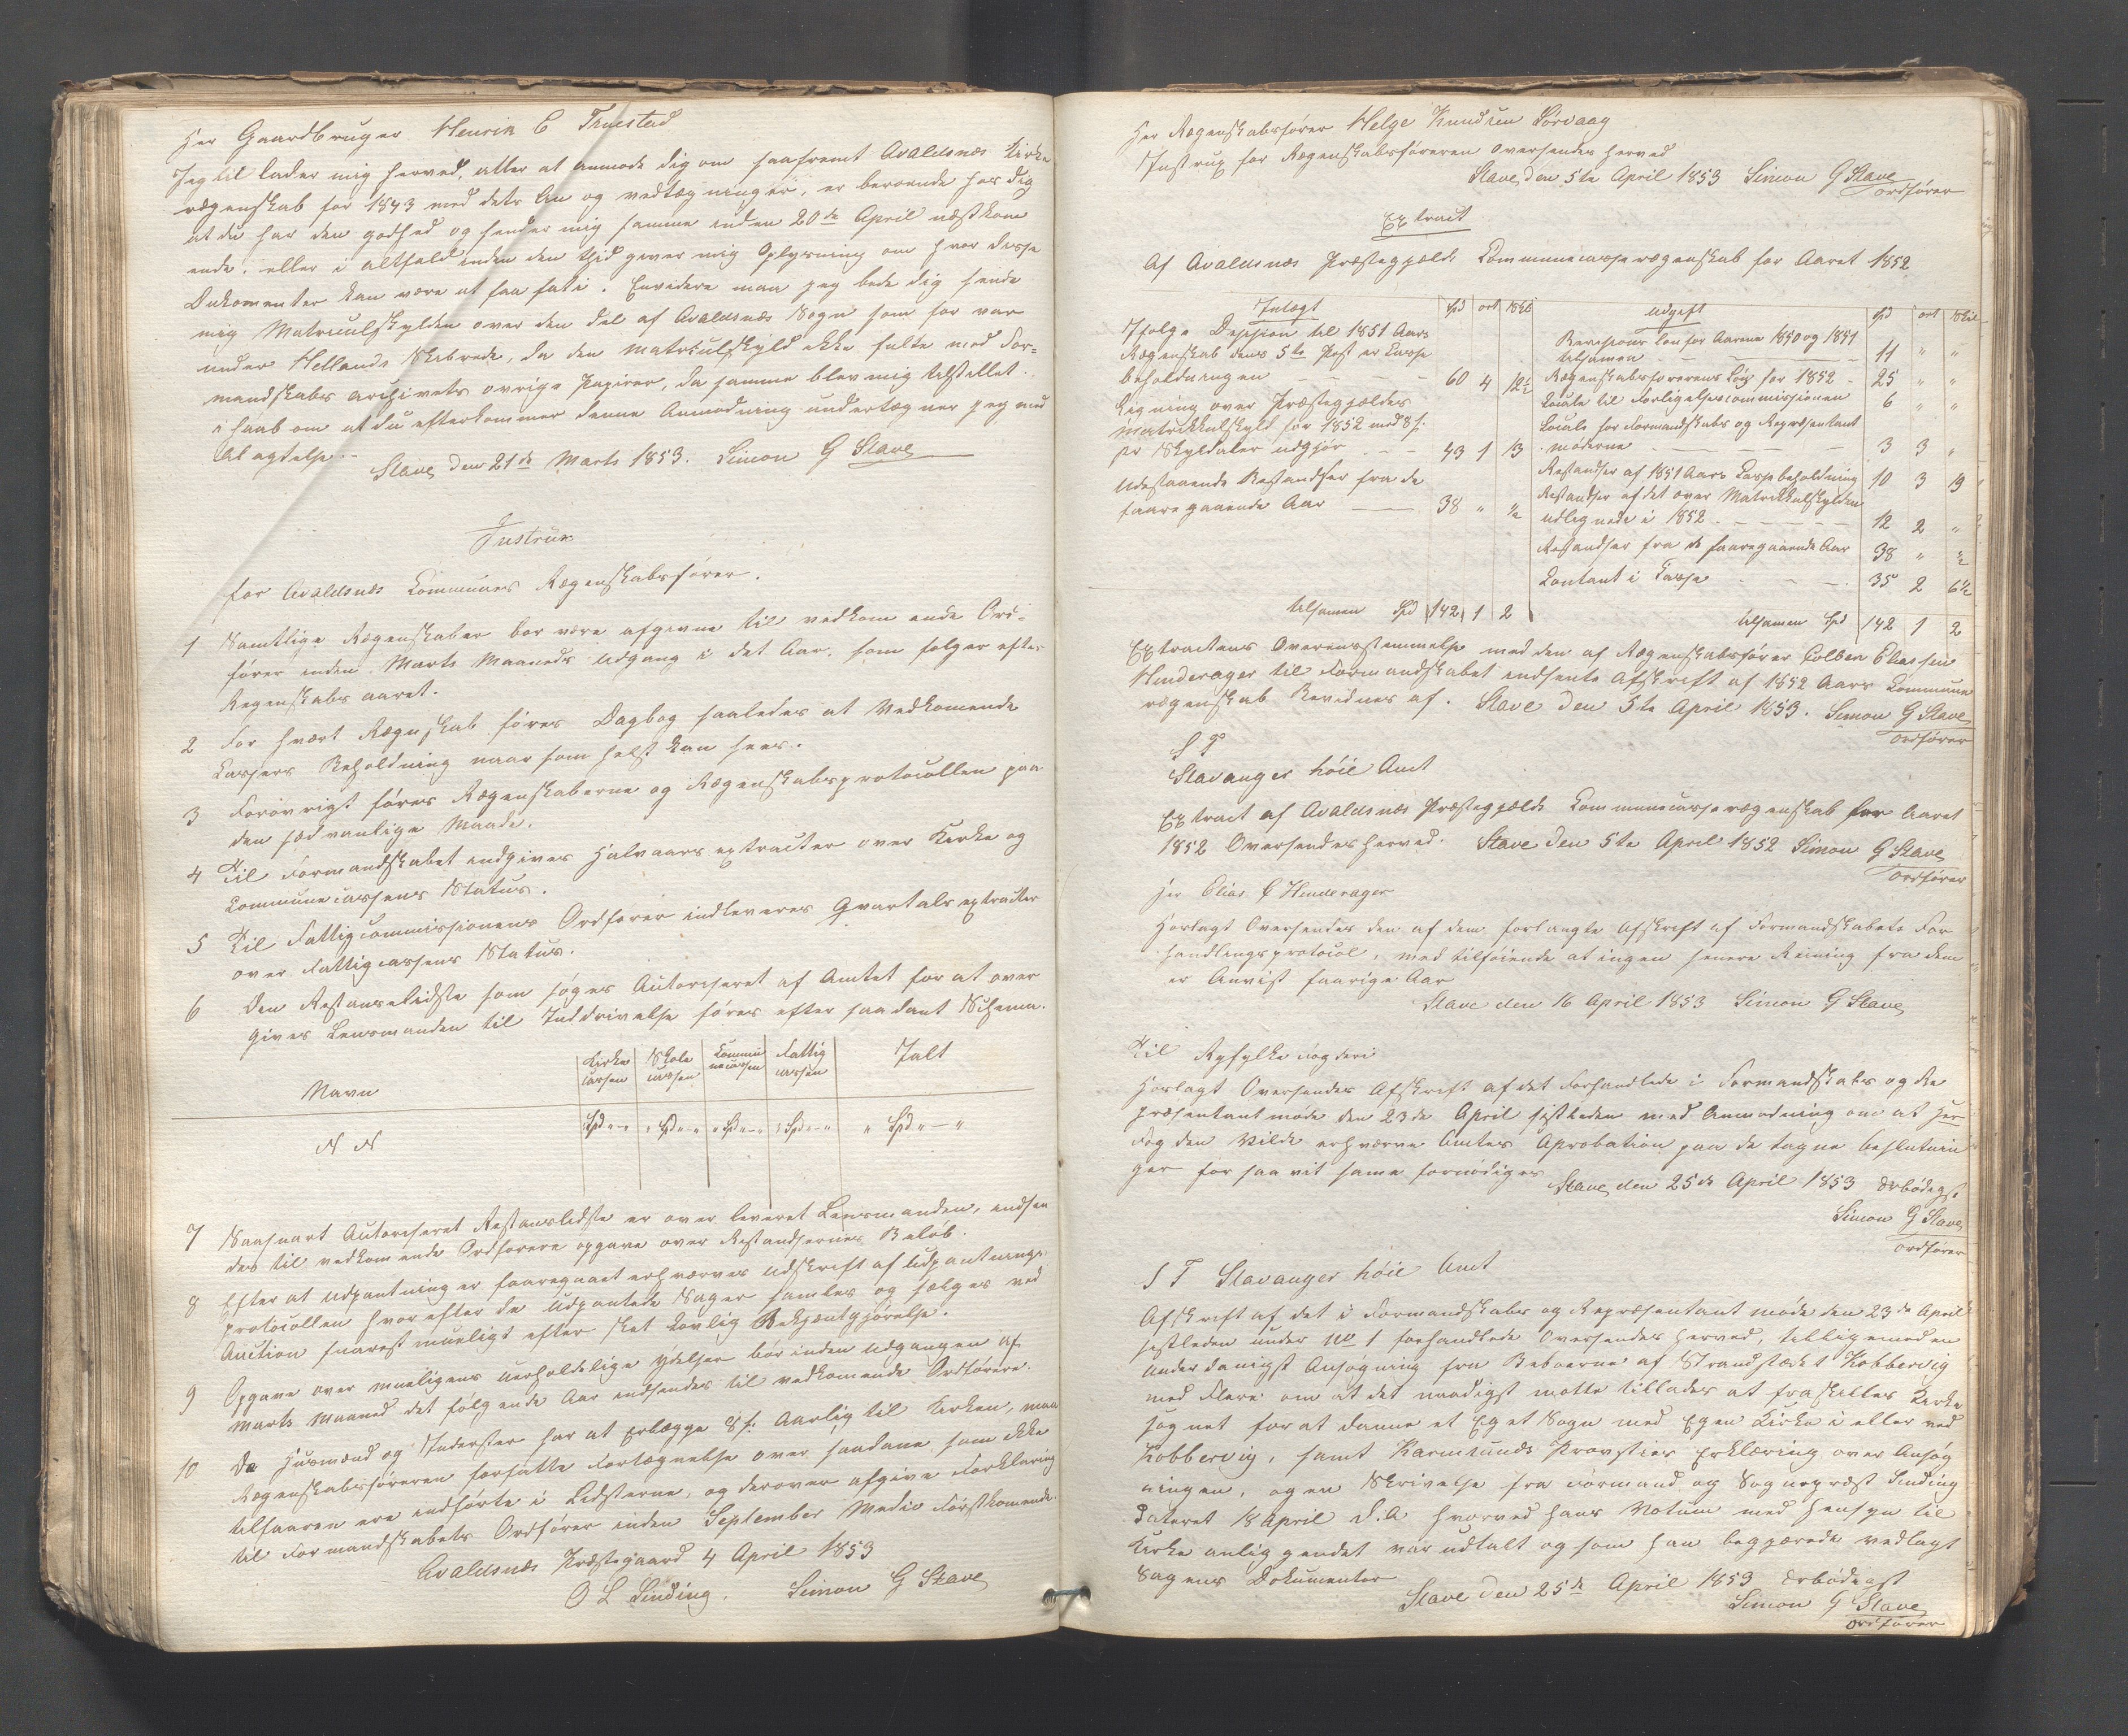 Her Gaardbruger Henrik C Truestad
Jeg til lader mig herved, atter at anmode dig om saafremt Avaldsnæs Kirke
rægenskab for 1843 med dets An og vedtægninger, er beroende hos dig
at du har den godhed og sender mig samme inden 20de April næstkom
ende, eller i altfald inden den tid giver mig Oplysning om hvor disse
Dokomenter kan være at faa fat i. Envidere maa jeg bede dig sende
mig Matriculskylden over den del af Avaldsnæs Sogn som før var
under Hetlands Skibrede, da den Matriculskyld ikke fulte med For-
mandskabs archivets øvrige Papirer, da samme blev mig tilstillet.
i haab om at du efterkommer denne Anmodning undertægner jeg med
al agtelse.
Stave den 21de Marts 1853. Simon G Stave
Instrux
for Avaldsnæs Communes Rægenskabsfører.
1 Samtlige Rægenskaber bør være afgivne til vedkom ende Ord-
fører inden Marts Maaneds udgang i det Aar, som følger efter
Regenskabs aaret.
2 For hvært Rægnskab føres Dagbog saaledes at Vedkomende
Cassers Beholdning naar som helst kan sees.
3 Forøvrigt føres Rægenskaberne og Rægenskabsprotocollen paa
den sædvanlige Maade.
4 Til Formandskabet indgives Halvaars extracter over Kirke og
Communecassens Status.
5 Til Fattigcommissionens Ordfører indleveres Qvartals extracter
over Fattigcassens Status.
6 Den Restanselidste som søges Autoriseret af Amtet for at over
gives Lensmanden til Inddrivelse føres efter saadant Schema.
Navn Kirke cassen Skole cassen Commu necassen Fattig cassen Ialt
N N Spd " - " Spd " - " Spd " - " Spd " - " " Spd " - "
7 Saasnart Autoriseret Restanslidste er over leveret Lensmanden, indsen
des til vedkomende Ordførere opgave over Restandsernes Beløb.
8 Efter at udpantning er foaregaaet erhværves udskrift af udpantnings
protocollen hvor efter de udpantede Sager samles og sælges ved
Auction snarest mueligt efter sket Lovlig Bekjentgjørelse.
9 Opgave over mueligens uerholdelige ydelser bør inden udgangen af
Marts Maaned det følgende Aar indsendes til vedkomende Ordførere.
10 Da Husmænd og Inderster har at erlægge 8 s. Aarlig til Kirken, maa
Rægenskabsføreren forfatte Fortegnelse over saadane som ikke
tilfaaren ere indførte i Lidsterne, og derover afgive Forklaring
til Formandskabets Ordfører inden September Medio Førstkomende.
Avaldsnæs Præstegaard 4 April 1853
O L Sinding. Simon G Stave
Her Rægenskabsfører Helge Knudsen Sørvaag
Instrux for Rægenskabsføreren oversendes herved
Stave den 5te April 1853 Simon G Stave
ordfører
Extract
Af Avaldsnæs Præstegjælds Communecasserægenskab for Aaret 1852
Indtægt Spd ort Skil udgift Spd ort Skil
Ifølge Desision til 1851 Aars
Rægenskab dens 5te Post er Casse
beholdningen 60 4 12½
Ligning over Præstegjældes
Matrikkulskyld for 1852 med 8 s.
pr Skyldaler udgjør 43 1 13
udestaaende Restandser fra de
faaregaaende Aar 38 " ½
Revisions løn for Aarene 1850 og 1851
tilsamen 11 " "
Rægenskabsførerens Løn for 1852 25 " "
Locale til Forligelsescommissionen 6 " "
Locale for Formandskabs og Repræsentant
møderne 3 3 "
Restandser af 1851 Aars Cassebeholdning 10 3 19
Restandser af det over Matrikkulskylden
udlignede i 1852 12 2 "
Restandser fra de faaregaaende Aar 38 " ½
Contant i Casse 35 2 6½
tilsamen Spd 142 1 2 tilsamen Spd 142 1 2
Extractens Overensstemmelse med den af Rægenskabsfører Colben Eliassen
Hinderager til Formandskabet indsente Afskrift af 1852 Aars Commune
rægenskab Bevidnes af. Stave den 5te April 1853. Simon G Stave
ordfører
S T
Stavanger høie Amt
Extract af Avaldsnæs Præstegjælds Communecasserægenskab for Aaret
1852 Oversendes herved. Stave den 5te April 1852 Simon G Stave
ordfører
Her Elias C Hinderager
Hoslagt Oversendes den af dem forlangte Afskrift af Formandskabets For
handlingsprotocol, med tilføiende at ingen senere Reining fra dem
er Anvist foarige Aar
Stave den 16 April 1853 Simon G Stave
Til Ryfylke Fogderi
Hoslagt Oversendes Afskrift af det Forhandlede i Formandskabs og Re
præsentant møde den 23de April sistleden med Anmodning om at Her
Fogden Vilde erhværve Amtes Aprobation paa de tagne beslutnin
ger for saa vit same fornødiges Stave den 25de April 1853 Ærbødigst
Simon G Stave
ordfører
S T Stavanger høie Amt
Afskrift af det i Formandskabs og Repræsentant møde den 23de April
sistleden under No 1 forhandlede Oversendes herved, tilligemed en
underdanigst Ansøgning fra Beboerne af Strandstædet Kobbervig
med Flere om at det naadigst motte tillades at fraskilles Kirke
sognet for at danne et Eget Sogn med Egen Kirke i eller ved
Kobbervig, samt Karmsunds Provsties Erklæring over Ansøg
ningen, og en Skrivelse fra Formand og Sognepræst Sinding
Dateret 18 April d. A hvorved hans Votum med hensyn til
Kirke anliggendet var udtalt og som han begjærede vedlagt
Sagens Dokumenter
Stave den 25de April 1853 Ærbødigst
Simon G Stave
ordfører